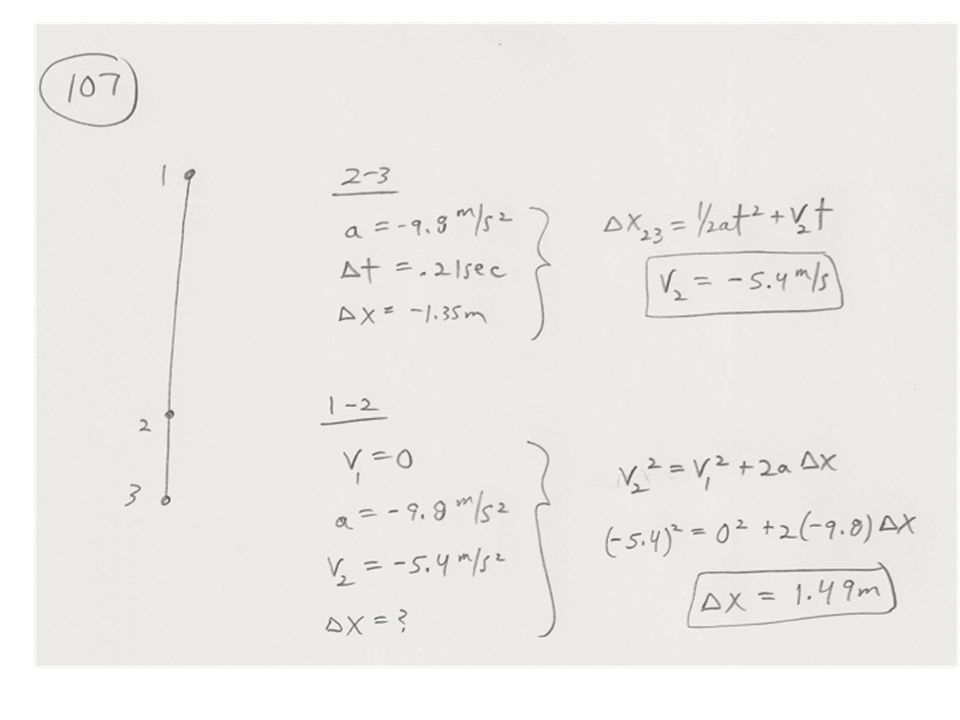 107
1
2
3
2-3
a = -9.8 m/s²
Δt = .21sec
Δx = -1.35m
Δx₂₃ = ½at² + V₂t
V₂ = -5.4 m/s
1-2
V₁ = 0
a = -9.8 m/s²
V₂ = -5.4 m/s²
Δx = ?
V₂² = V₁² + 2a Δx
(-5.4)² = 0² + 2(-9.8) Δx
Δx = 1.49m